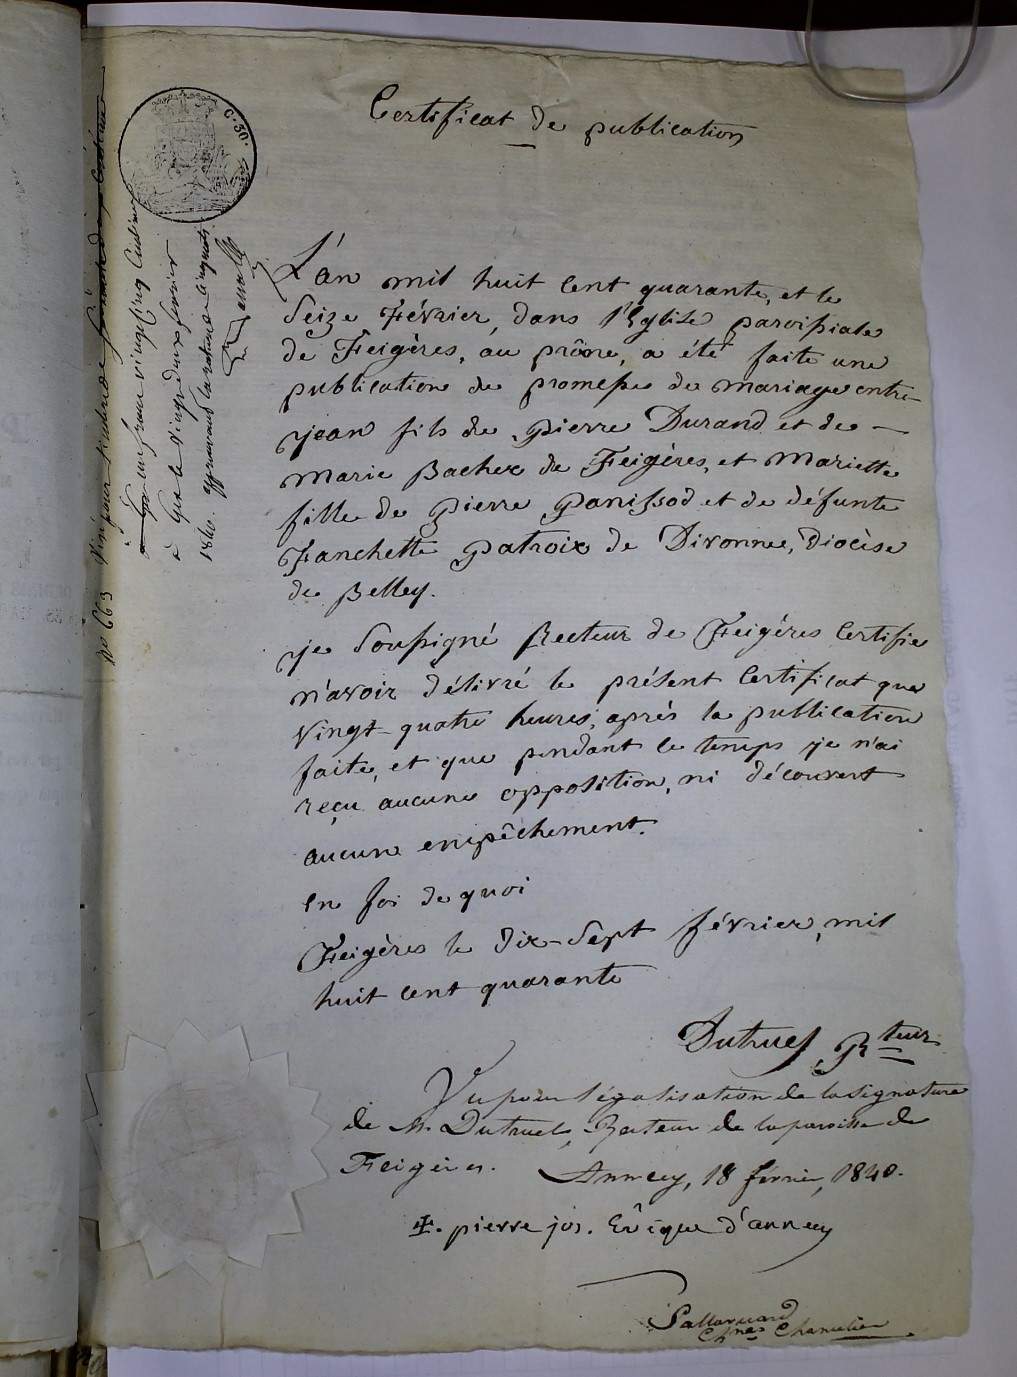 Certificat de publication
C. 30.
L'an mil huit cent quarante, et le
Seize Février, dans l'Eglise paroissiale
de Feigères, au prône, a été faite une
publication de promesse de mariage entre
jean fils de pierre Durand et de
Marie Bachex de Feigères, et Mariette
fille de pierre panissod et de défunte
Fanchette patroix de Divonne, Diocèse
de Belley.
je soussigné Recteur de Feigères Certifie
n'avoir délivré le présent Certificat que
vingt-quatre heures, après la publication
faite, et que pendant ce temps je n'ai
reçu aucune opposition, ni découvert
aucune empêchement.
en foi de quoi
Feigères le dix-sept février, mil
huit cent quarante
Dutruel, Rteur
Vu pour légalisation de la signature
de Mr. Dutruel, Recteur de la paroisse de
Feigères. Annecy, 18 février, 1840.
pierre jos. Evêque d'annecy
Chne Chancelier
No 663 Visé pour
un franc vingt cinq Centimes
à Gex le vingt deux février
1840. approuvant la rature de cinq mots